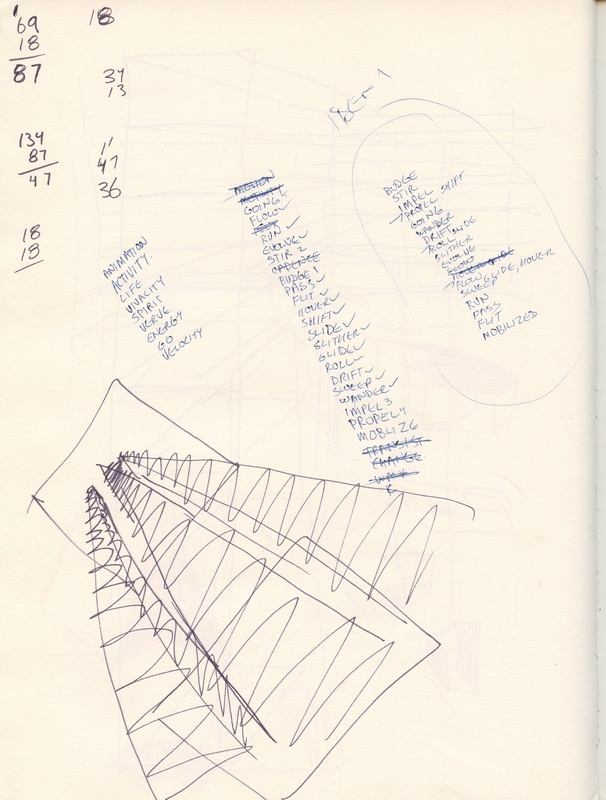 69
18
87
134
87
47
18
18
18
34
13
11
47
36
ANIMATION
ACTIVITY.
LIFE
VIVACITY
SPIRIT
VERVE
ENERGY
GO
VELOCITY
MOTION
GOING
FLOW
RUN
EVOLVE
STIR 2
CADENCE
BUDGE 1
PASS
FLIT
HOVER
SHIFT
SLIDE
SLITHER
GLIDE
ROLL
DRIFT
SWEEP
WANDER
IMPEL 3
PROPEL 4
MOBLIZ6
TRANSIST
CHANGE
WALK
BUDGE
STIR
IMPEL SHIFT
PROPELL
GOING
WANDER
DRIFT SLIDE
ROLL
SLITHER
EVOLVE
FLOW
FLOW GLIDE, HOVER
SWEEP
RUN
PASS
FLIT
MOBILIZED